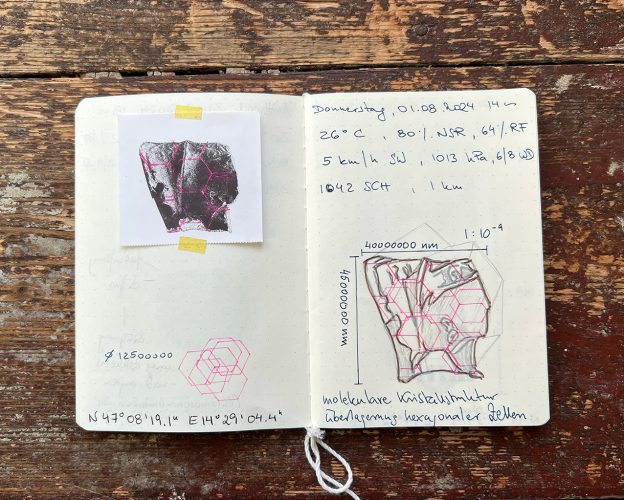 ø 12500000
N 47°08'19.1" E 14°29'04.4"
Donnerstag, 01.08.2024 14 h
26°C , 80% NSR , 64% RF
5 km/h SW , 1013 hPa, 6/8 WD
1042 SCH , 1 km
1:10⁻⁹
40000000 nm
45000000 nm
molekulare Kristallstruktur
Überlagerung hexagonaler Zellen